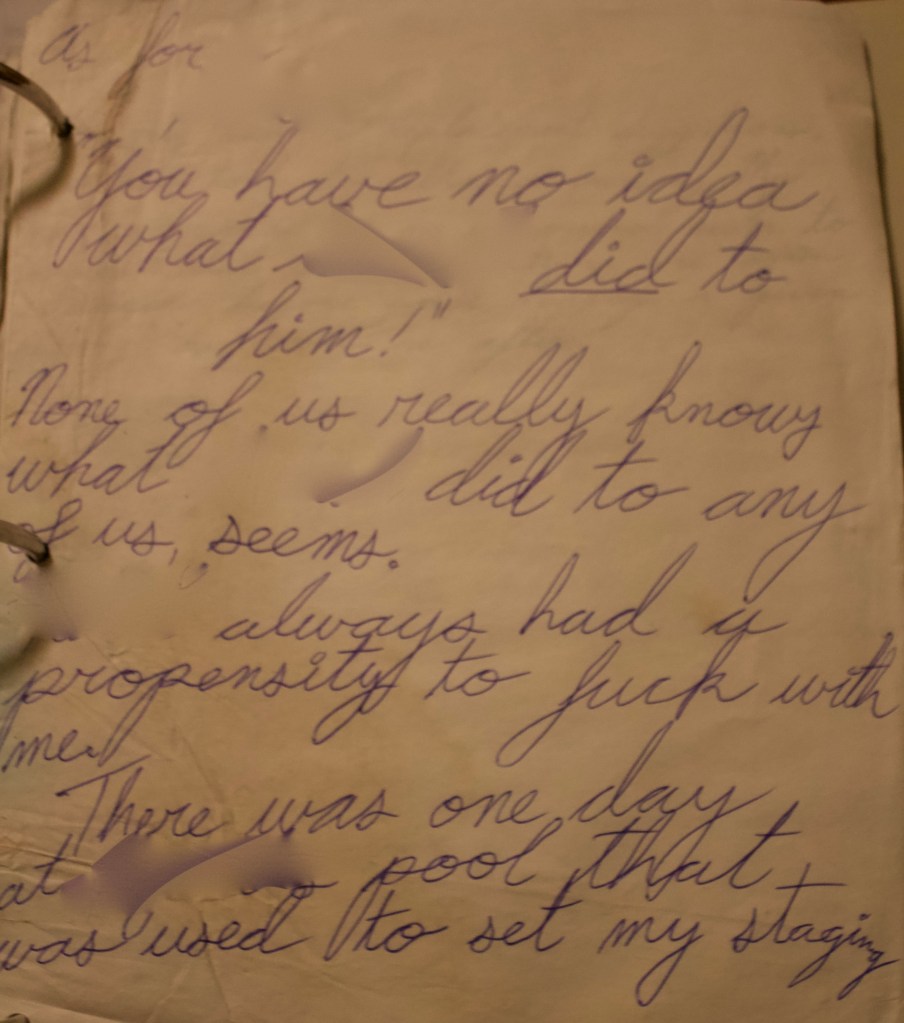 as for
"You have no idea
what did to
him!"
None of us really knowy
what did to any
of us, seems.
always had a
propensity to fuck with
me.
There was one day
at pool that I
was used to set my staging